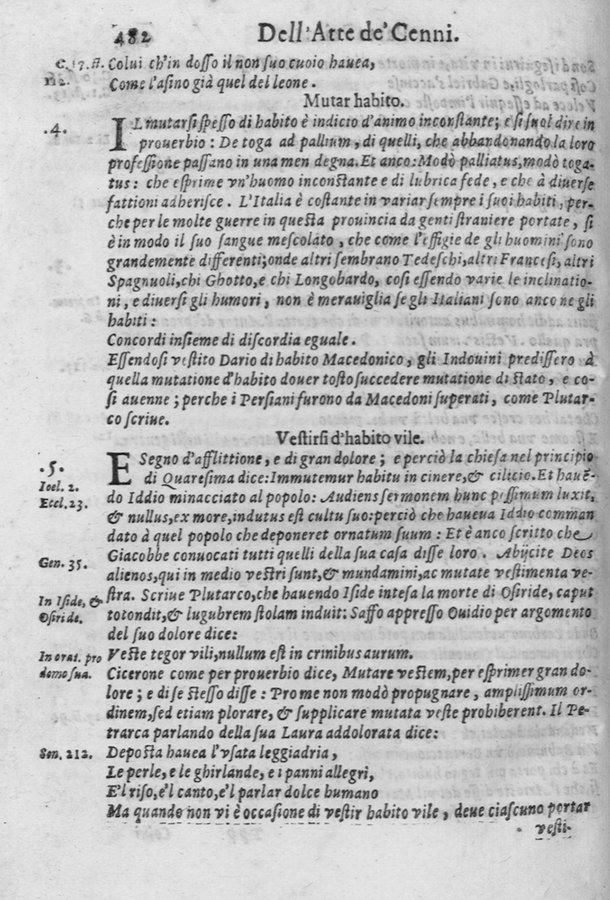 482 Dell'Arte de' Cenni.
C. 17. st. Colui ch'in dosso il non suo cuoio hauea,
112. Come l'asino già quel del leone.
Mutar habito.
.4. IL mutarsi spesso di habito è indicio d'animo inconstante; e si suol dire in
prouerbio: De toga ad pallium, di quelli, che abbandonando la loro
professione passano in una men degna. Et anco: Modò palliatus, modò toga-
tus: che esprime vn'huomo inconstante e di lubrica fede, e che à diuerse
fattioni adherisce. L'Italia è costante in variar sempre i suoi habiti, per-
che per le molte guerre in questa prouincia da genti straniere portate, si
è in modo il suo sangue mescolato, che come l'effigie de gli huomini sono
grandemente differenti; onde altri sembrano Tedeschi, altri Francesi, altri
Spagnuoli, chi Ghotto, e chi Longobardo, così essendo varie le inclinatio-
ni, e diuersi gli humori, non è merauiglia se gli Italiani sono anco ne gli
habiti:
Concordi insieme di discordia eguale.
Essendosi vestito Dario di habito Macedonico, gli Indouini predissero à
quella mutatione d'habito douer tosto succedere mutatione di stato, e co-
si auenne; perche i Persiani furono da Macedoni superati, come Plutar-
co scriue.
Vestirsi d'habito vile.
.5. E Segno d'afflittione, e di gran dolore; e perciò la chiesa nel principio
Ioel. 2. di Quaresima dice: Immutemur habitu in cinere, & cilicio. Et hauẽ-
Eccl. 23. do Iddio minacciato al popolo: Audiens sermonem hunc pessimum luxit,
& nullus, ex more, indutus est cultu suo: perciò che haueua Iddio comman
dato à quel popolo che deponeret ornatum suum: Et è anco scritto che
Gen. 35. Giacobbe conuocati tutti quelli della sua casa disse loro. Abijcite Deos
alienos, qui in medio vestri sunt, & mundamini, ac mutate vestimenta ve-
In Iside, & stra. Scriue Plutarco, che hauendo Iside intesa la morte di Osiride, caput
Osiride. totondit, & lugubrem stolam induit: Saffo appresso Ouidio per argomento
del suo dolore dice:
In orat. pro Veste tegor vili, nullum est in crinibus aurum.
domo sua. Cicerone come per prouerbio dice, Mutare vestem, per esprimer gran do-
lore; e di se stesso disse: Pro me non modò propugnare, amplissimum or-
dinem, sed etiam plorare, & supplicare mutata veste prohiberent. Il Pe-
trarca parlando della sua Laura addolorata dice:
Son. 212. Deposta hauea l'vsata leggiadria,
Le perle, e le ghirlande, e i panni allegri,
E'l riso, e'l canto, e'l parlar dolce humano
Ma quando non vi è occasione di vestir habito vile, deue ciascuno portar
vesti-